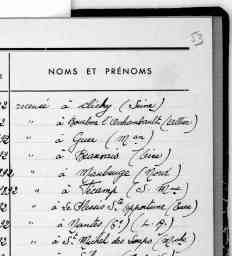 53
NOMS ET PRÉNOMS
2 recensé à Clichy (Seine)
2 " à Bourbon l'Archambault (Allier)
92 " à Guer (Man)
2 " à Beauvais (Oise)
92 " à Maubeuge (Nord)
1892 " à Fécamp (S. Mme)
92 " à Le Plessis Ste Opportune (Eure)
92 " à Nantes (L. A.)
92 " à St Michel des Loups (Mche)
92 "